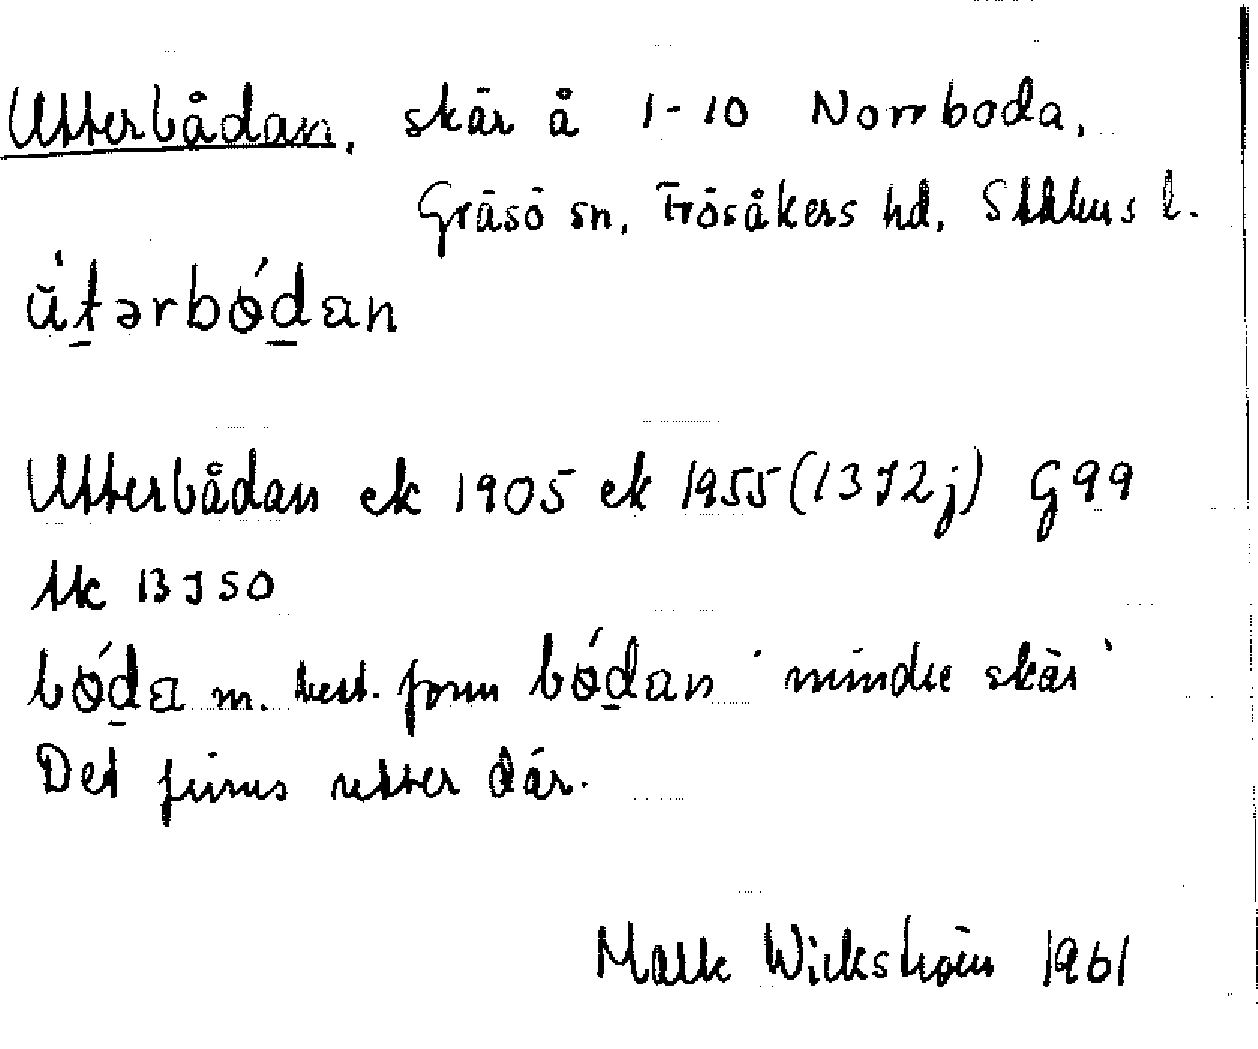 Utterbådan, skär å 1-10 Norrboda,
Gräsö sn, Frösåkers hd, Sthlms l.
ŭ̀tərbǿdan
Utterbådan ek 1905 ek 1955 (13 I 2 j) G 99
tk 13 I SO
bǿda m. best. form bǿdan 'mindre skär'
Det finns utter där.
Wickström 1961